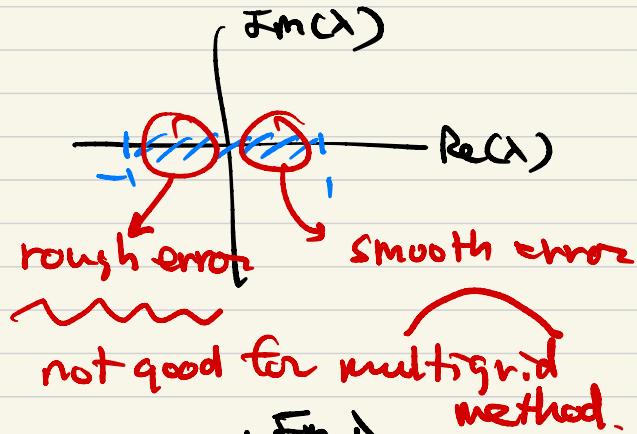 Im(λ)
Re(λ)
-1
1
rough error
smooth error
not good for multigrid
method.
Im